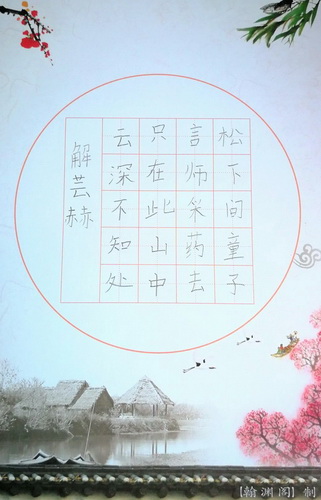 松下间童子
言师采药去
只在此山中
云深不知处
解芸赫
【翰渊阁】制